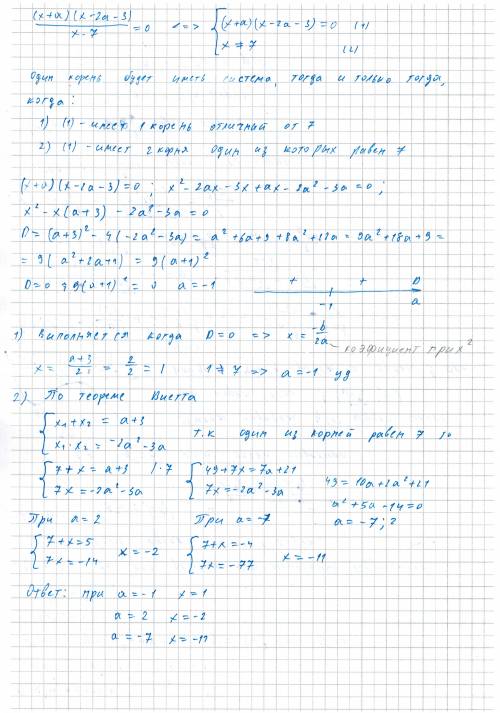 (x+a)(x-2a-3)/(x-7) = 0 <=> { (x+a)(x-2a-3)=0 (1)
x ≠ 7 (2)
один корень будет иметь система, тогда и только тогда,
когда:
1) (1) - имеет 1 корень отличный от 7
2) (1) - имеет 2 корня один из которых равен 7
(x+a)(x-2a-3)=0 ; x²-2ax-3x+ax-2a²-3a=0 ;
x²-x(a+3)-2a²-3a=0
D=(a+3)²-4(-2a²-3a)= a²+6a+9+8a²+12a=9a²+18a+9=
=9(a²+2a+1)=9(a+1)²
D=0 9(a+1)²=0 a=-1
+ + D
-1 a
1) Выполняется когда D=0 => x = -b/2a коефициент при x²
x = (a+3)/(2·1) = 2/2 = 1 1≠7 => a=-1 уд
2) По теореме Виетта
{ x₁+x₂ = a+3
x₁·x₂ = -2a²-3a т.к один из корней равен 7 то
{ 7+x=a+3 |·7 { 49+7x=7a+21 49=10a+2a²+21
7x=-2a²-3a 7x=-2a²-3a a²+5a-14=0
При a=2 При a=-7 a=-7; 2
{ 7+x=5 x=-2 { 7+x=-4 x=-11
7x=-14 7x=-77
Ответ: при a=-1 x=1
a=2 x=-2
a=-7 x=-11